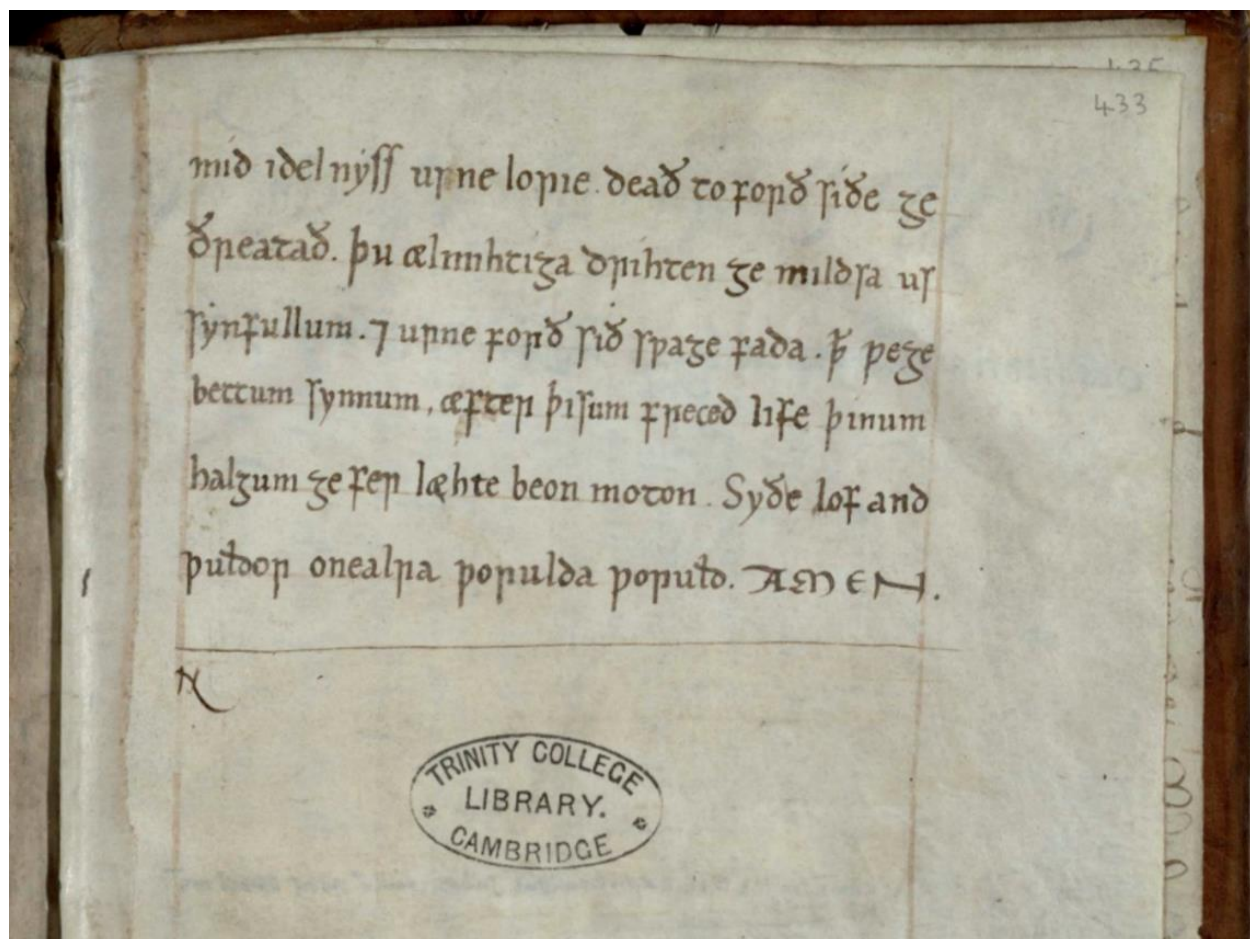 433
mid idel nẏſſ ურne loꞃıe. deað to forð ſiðe ge
ðreatað. þu ælmihtiga drihten ge mildſa uſ
ſẏnfullum. ⁊ urne forð ſið ſƿa ge fada. ꝥ ƿe ge
bettum ſynnum, æfter þiſum freced life þinum
halgum ge fer læhte beon moton. Syðe lof and
ƿułdor onealra ƿorulda ƿorułd. AMEN.
TRINITY COLLEGE
LIBRARY.
CAMBRIDGE